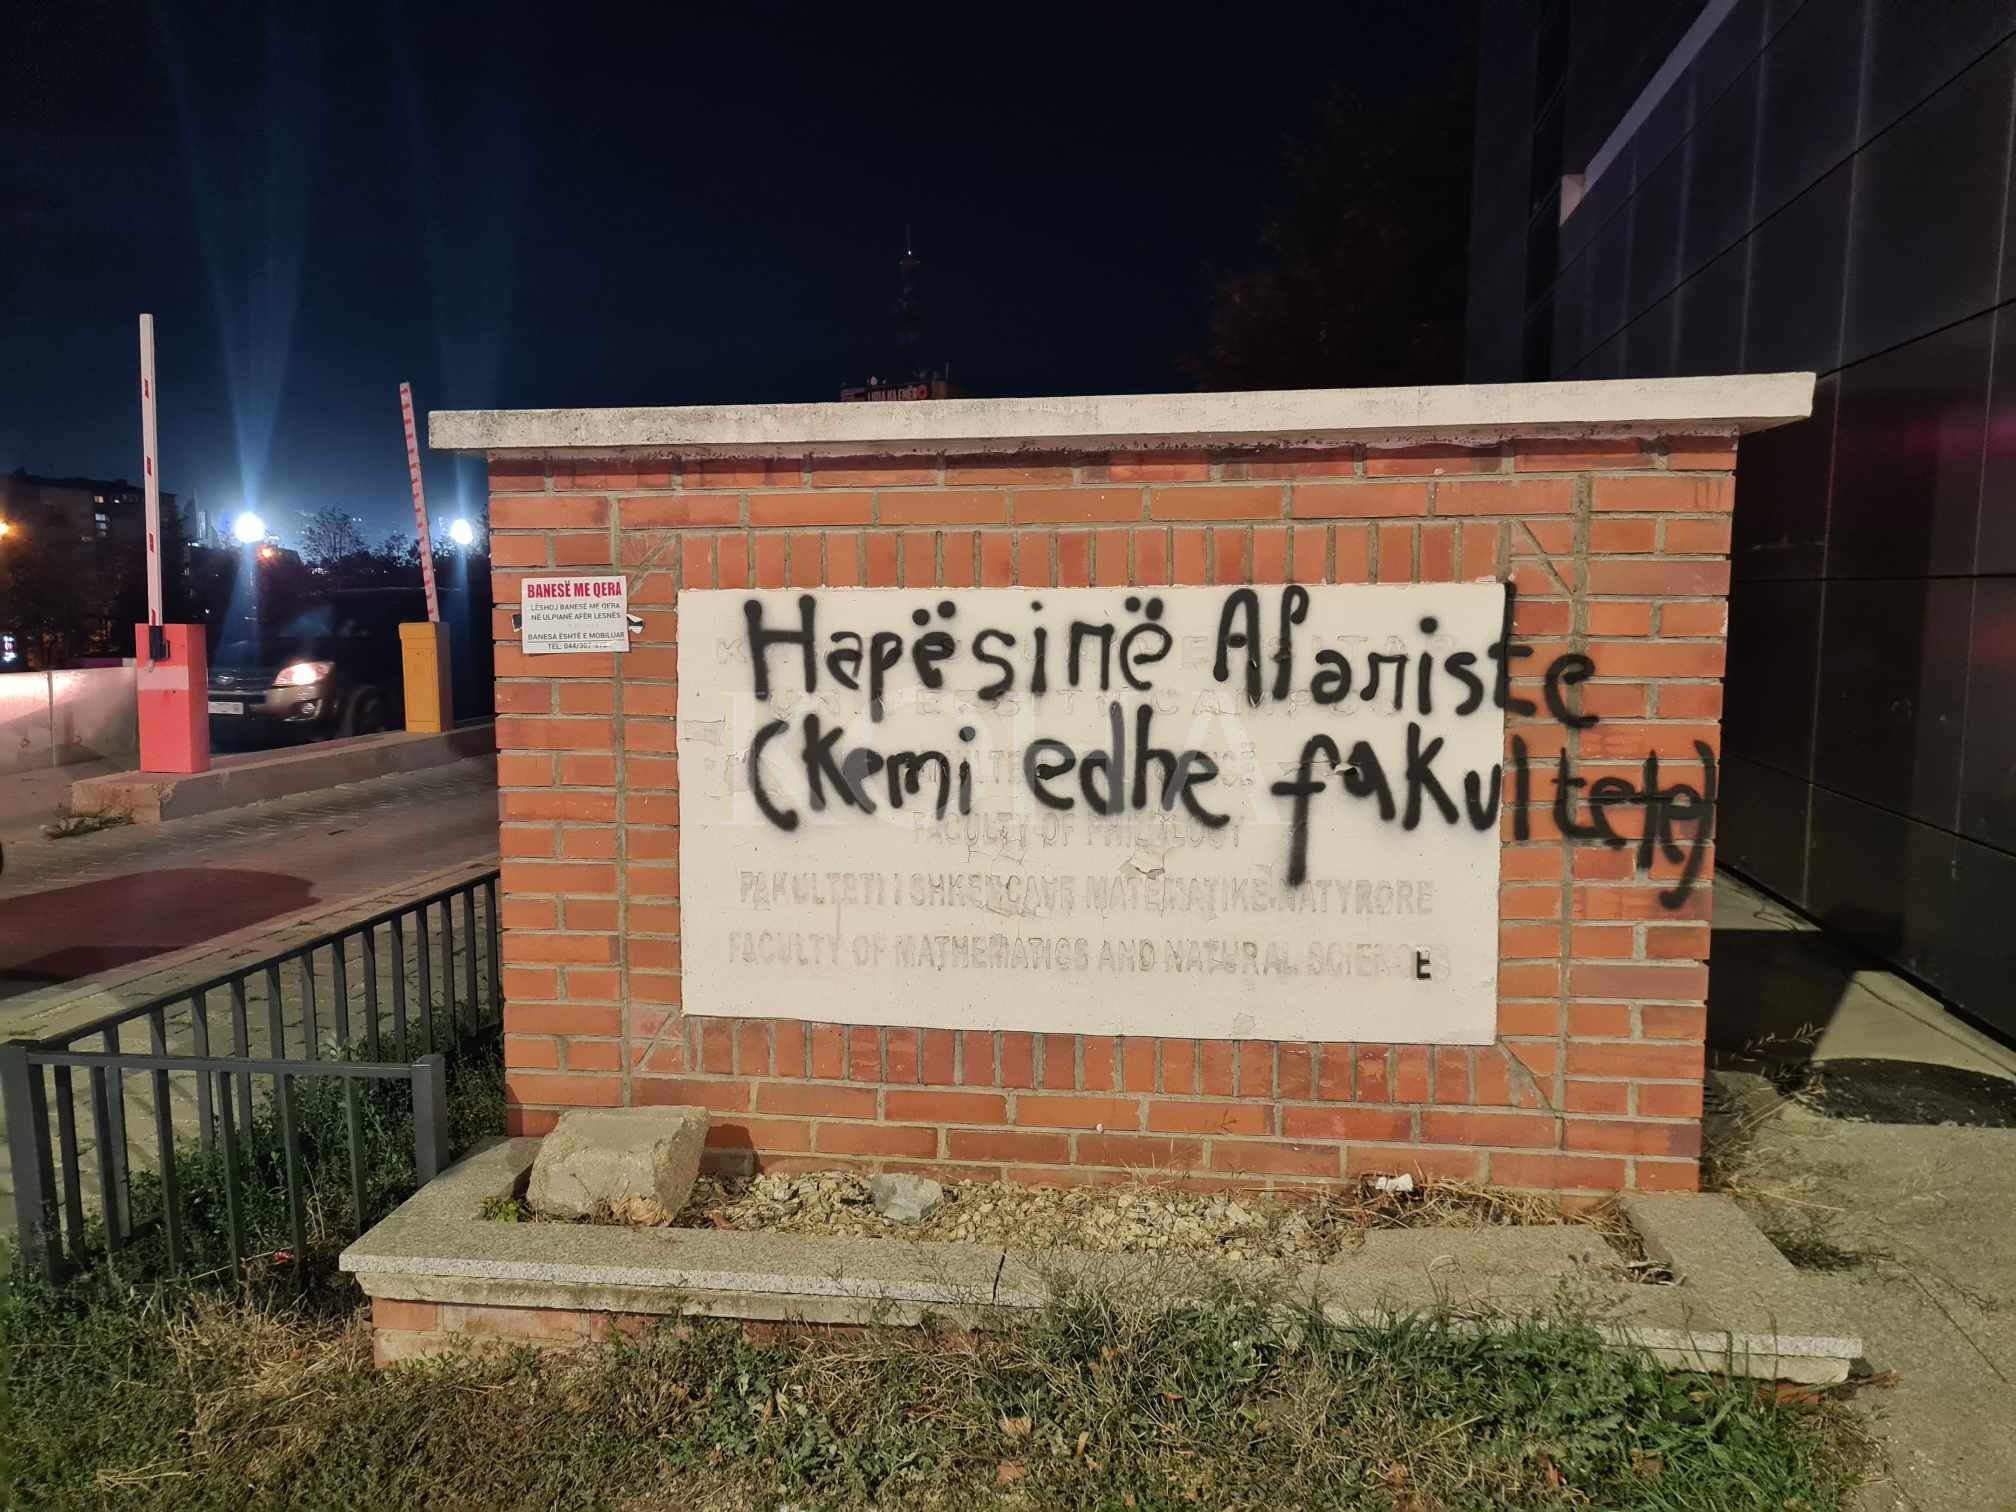 BANESË ME QERA
LËSHOJ BANESË ME QERA
NË ULPIANË AFËR LESNËS
BANESA ËSHTË E MOBILUAR
TEL: 044/307
Hapësinë Afariste
(Kemi edhe fakultete)
KOHA
UNIVERSITY CAMPUS
FACULTY OF PHILOLOGY
FAKULTETI I SHKENCAVE MATEMATIKE NATYRORE
FACULTY OF MATHEMATICS AND NATURAL SCIENCES